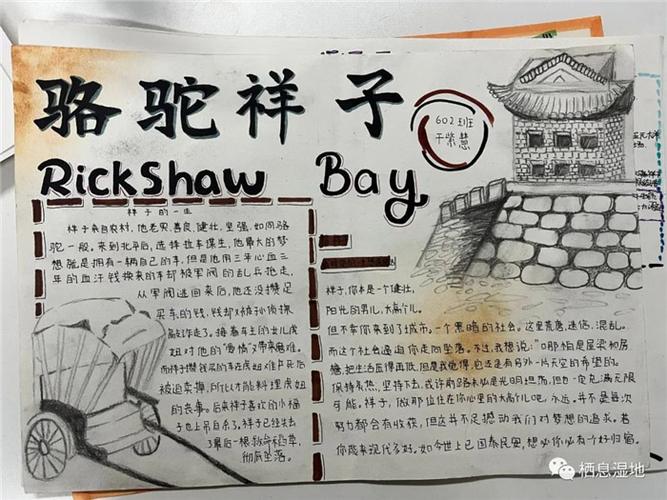 骆驼祥子
602班
干紫慧
Rickshaw Bay
祥子的一生
祥子来自农村，他老实、善良、健壮、坚强，如同骆
驼一般。来到北平后，选择拉车谋生，他最大的梦
想就是拥有一辆自己的车，但是他用三年心血三
年的血汗钱换来的车却被军阀的乱兵抢走，
从军阀逃回来后，他还没攒足
买车的钱，钱却又被孙侦探
敲诈走了。接着车主的女儿虎
妞对他的“爱情”又带来磨难。
而祥子攒钱买的车在虎妞难产死后
被迫卖掉，所以才能料理虎妞
的丧事。后来祥子喜欢的小福
子也上吊自杀了。祥子已经失去
了最后一根救命稻草，
彻底坠落。
祥子，你本是一个健壮、
阳光的男儿，大高个儿。
但不幸你来到了城市，一个黑暗的社会。这里荒唐，迷信，混乱。
而这个社会逼迫你走向坠落。不过，我想说：“哪怕是屋梁和房
檐，把生活压得再低，但是我觉得，也还是有另外一片天空的希望的。
保持炙热，坚持下去，或许前路未必是光明坦荡，但也一定充满无限
可能。祥子，做那位住在你心里的大高个儿吧，永远。并不是每次
努力都会有收获，但这并不足撼动我们对梦想的追求。若
你能来现代多好。如今世上已国泰民安，想必你必有个好归宿。
栖息湿地